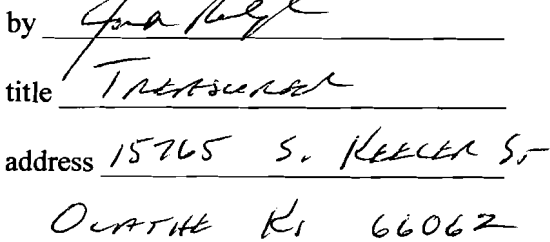 by
title TREASURER
address 15765 S. KEELER ST
OLATHE KS 66062